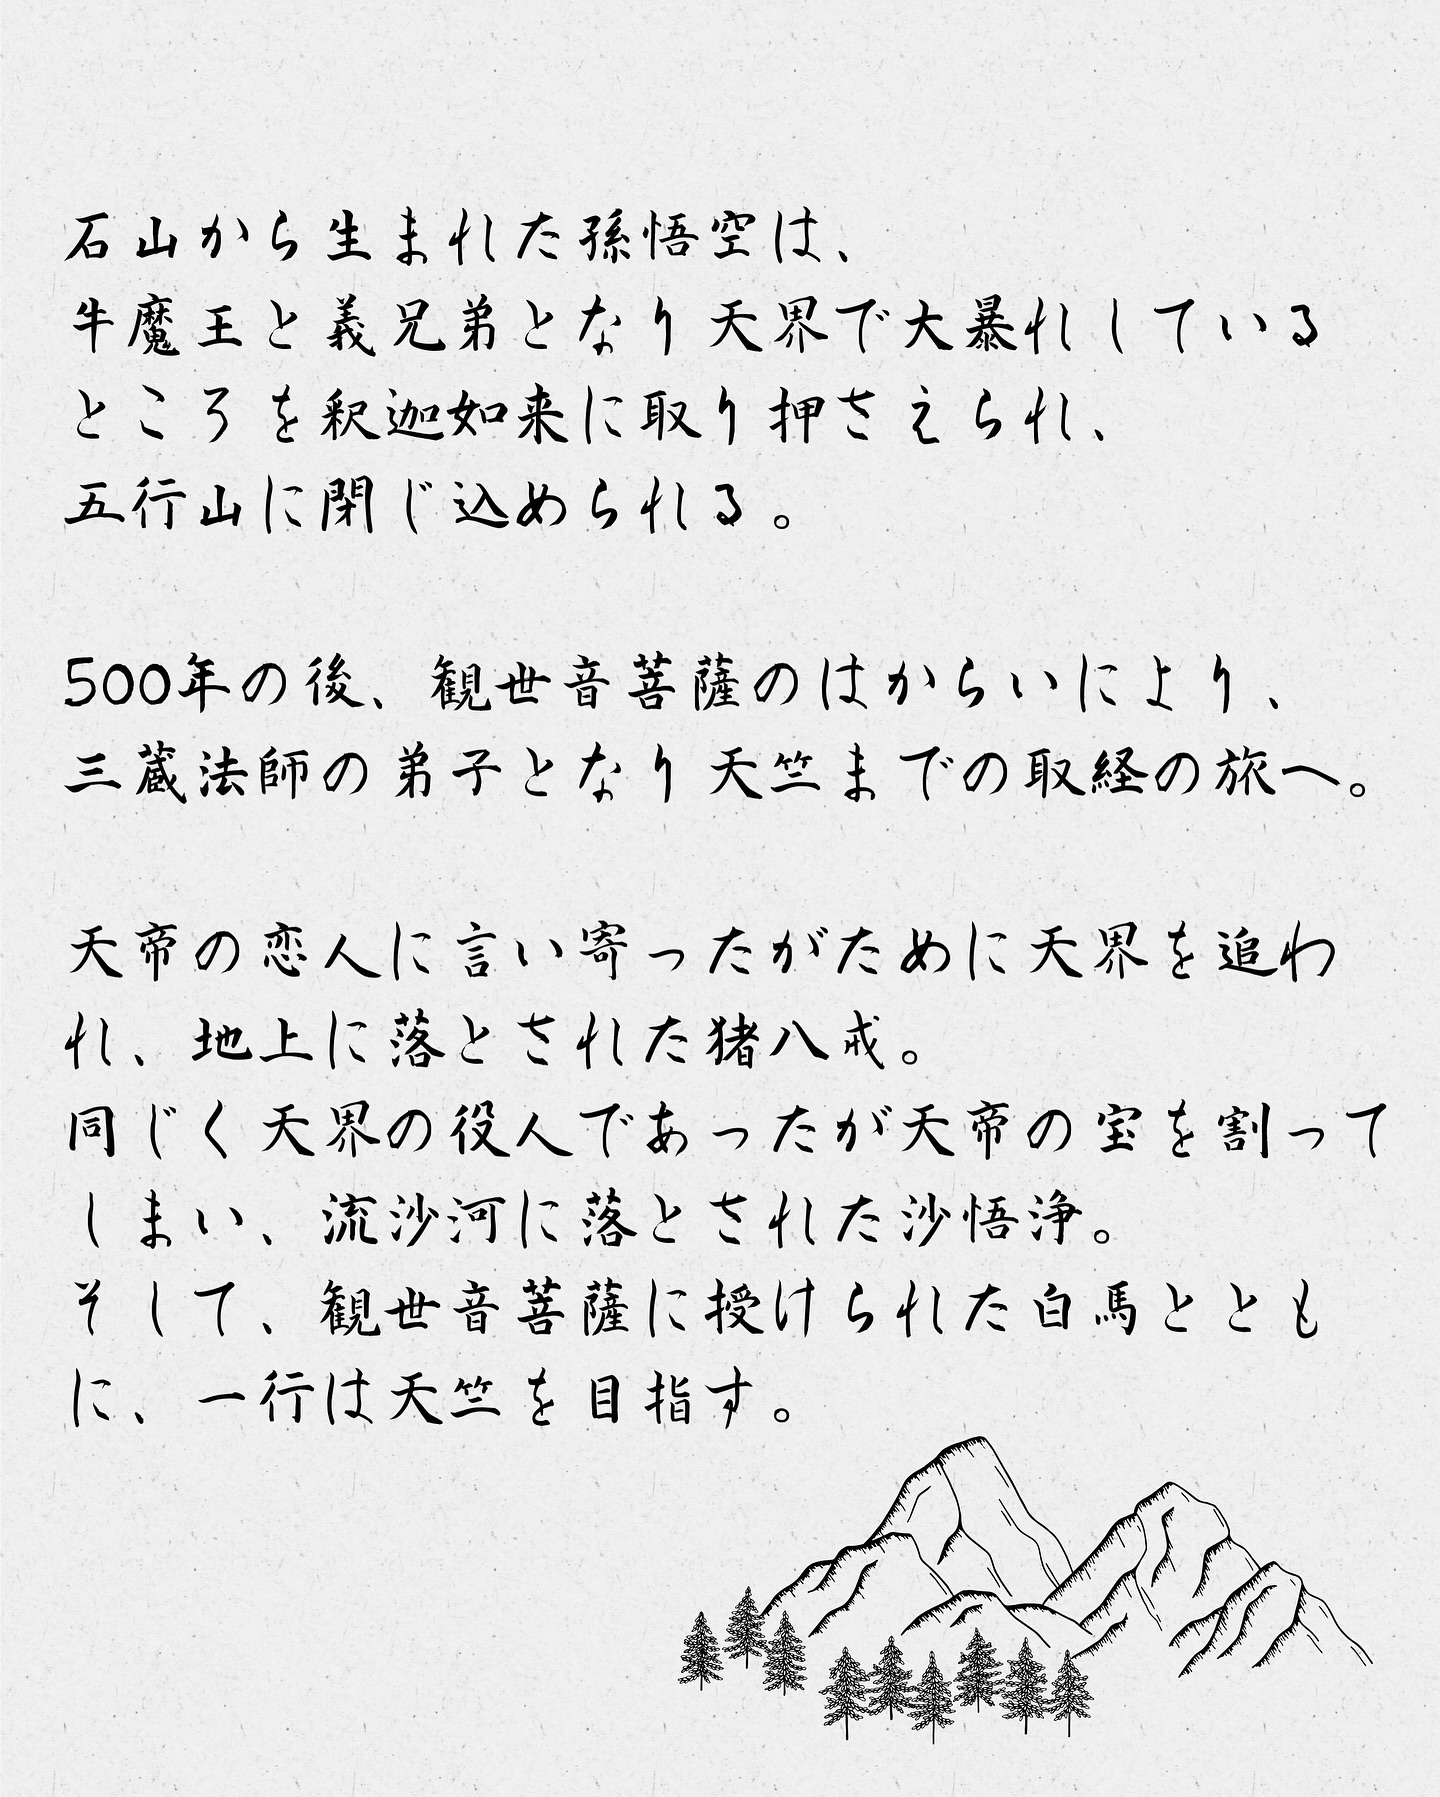 石山から生まれた孫悟空は、
牛魔王と義兄弟となり天界で大暴れしている
ところを釈迦如来に取り押さえられ、
五行山に閉じ込められる。
500年の後、観世音菩薩のはからいにより、
三蔵法師の弟子となり天竺までの取経の旅へ。
天帝の恋人に言い寄ったがために天界を追わ
れ、地上に落とされた猪八戒。
同じく天界の役人であったが天帝の宝を割って
しまい、流沙河に落とされた沙悟浄。
そして、観世音菩薩に授けられた白馬ととも
に、一行は天竺を目指す。